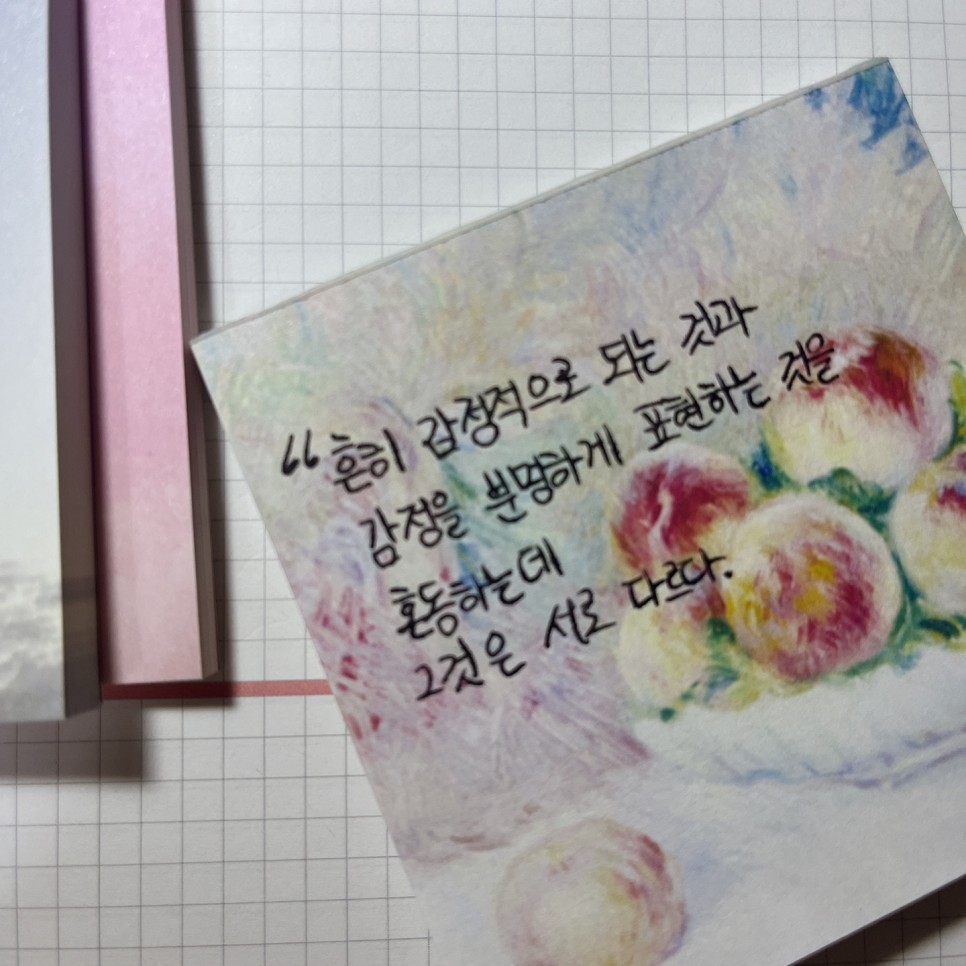 “흔히 감정적으로 되는 것과
감정을 분명하게 표현하는 것을
혼동하는데
그것은 서로 다르다.